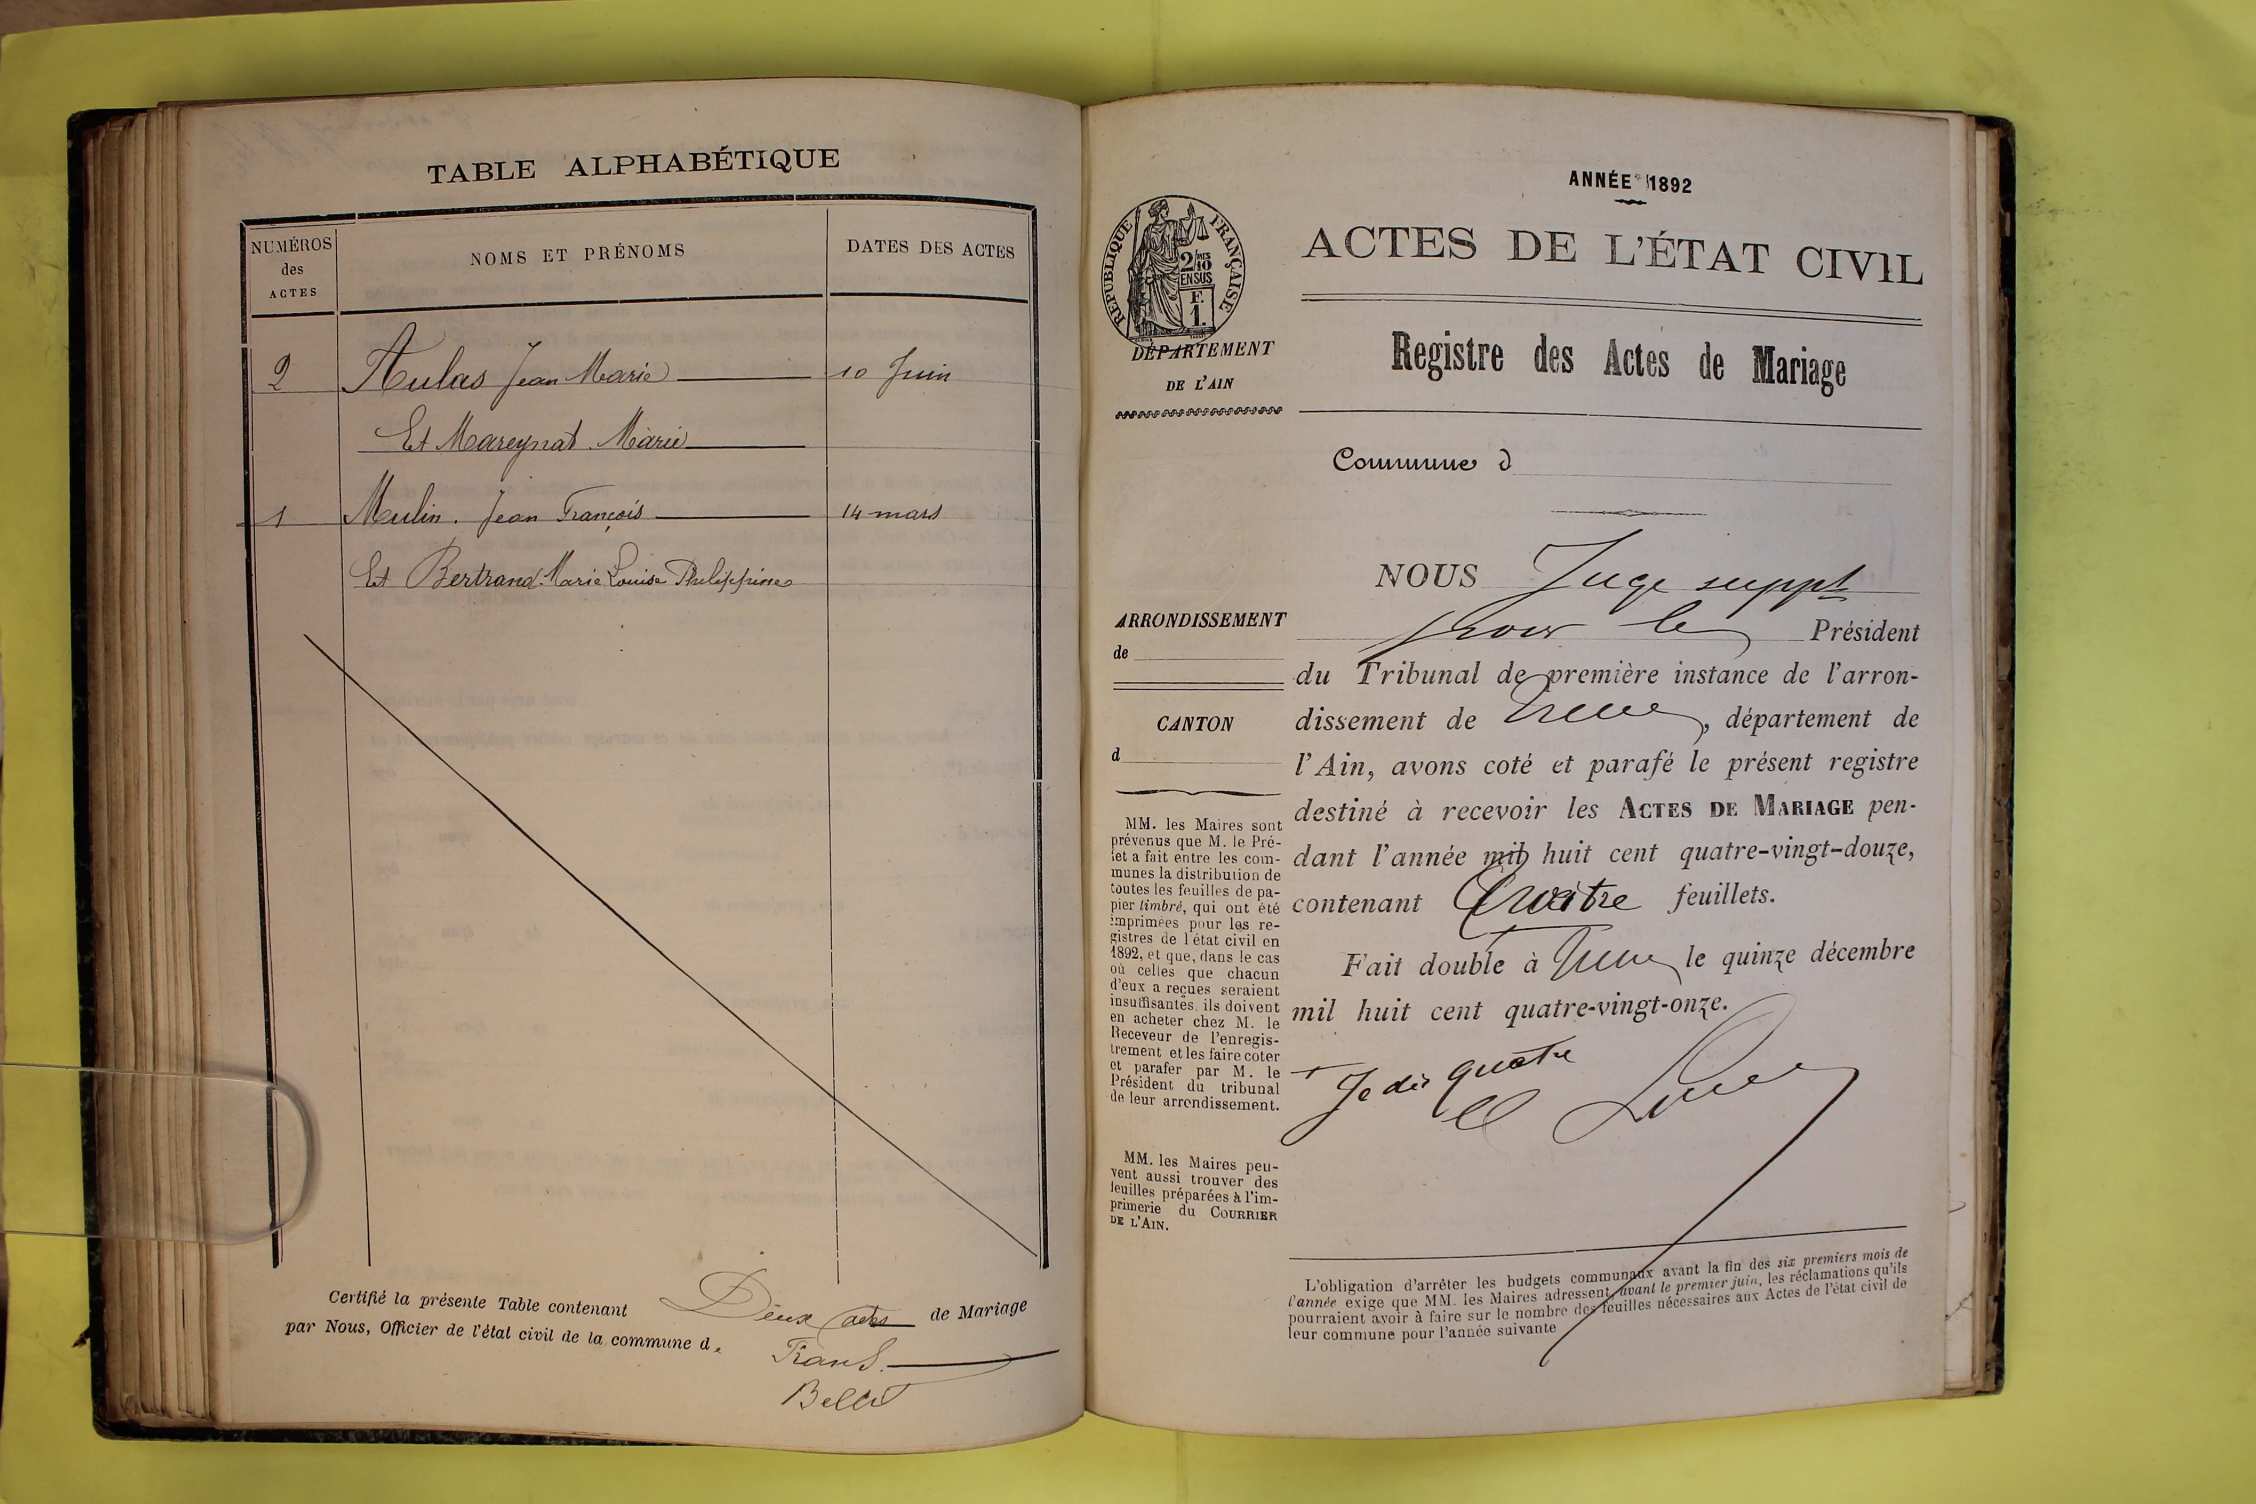 TABLE ALPHABÉTIQUE
NUMÉROS des ACTES
NOMS ET PRÉNOMS
DATES DES ACTES
2 Aulas Jean Marie 10 Juin
Et Mareynat Marie
1 Mulin. Jean François 14 mars
Et Bertrand Marie Louise Philippine
Certifié la présente Table contenant Deux actes de Mariage
par Nous, Officier de l'état civil de la commune de
Frans.
ANNÉE 1892
RÉPUBLIQUE FRANÇAISE
2/10
EN SUS
F.
1.
DÉPARTEMENT
DE L'AIN
ACTES DE L'ÉTAT CIVIL
Registre des Actes de Mariage
Commune d
ARRONDISSEMENT
de
CANTON
d
MM. les Maires sont
prévenus que M. le Pré-
fet a fait entre les com-
munes la distribution de
toutes les feuilles de pa-
pier timbré, qui ont été
imprimées pour les re-
gistres de l'état civil en
1892, et que, dans le cas
où celles que chacun
d'eux a reçues seraient
insuffisantes, ils doivent
en acheter chez M. le
Receveur de l'enregis-
trement et les faire coter
et parafer par M. le
Président du tribunal
de leur arrondissement.
MM. les Maires peu-
vent aussi trouver des
feuilles préparées à l'im-
primerie du COURRIER
DE L'AIN.
NOUS Juge suppt
pour le Président
du Tribunal de première instance de l'arron-
dissement de , département de
l'Ain, avons coté et parafé le présent registre
destiné à recevoir les ACTES DE MARIAGE pen-
dant l'année mil huit cent quatre-vingt-douze,
contenant Quatre feuillets.
Fait double à le quinze décembre
mil huit cent quatre-vingt-onze.
Je dis quatre
L'obligation d'arrêter les budgets communaux avant la fin des six premiers mois de
l'année exige que MM. les Maires adressent, avant le premier juin, les réclamations qu'ils
pourraient avoir à faire sur le nombre des feuilles nécessaires aux Actes de l'état civil de
leur commune pour l'année suivante